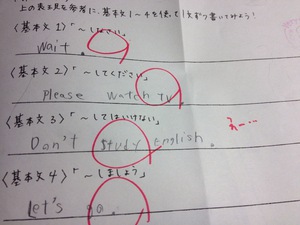 上の表示を参考に、基本文1～4を使って1文ずつ書いてみよう!
〈基本文1〉「～しなさい」
Wait.
〈基本文2〉「～してください」
Please watch tv.
〈基本文3〉「～してはいけない」
Don't study English.
えー…
〈基本文4〉「～しましょう」
Let's go.